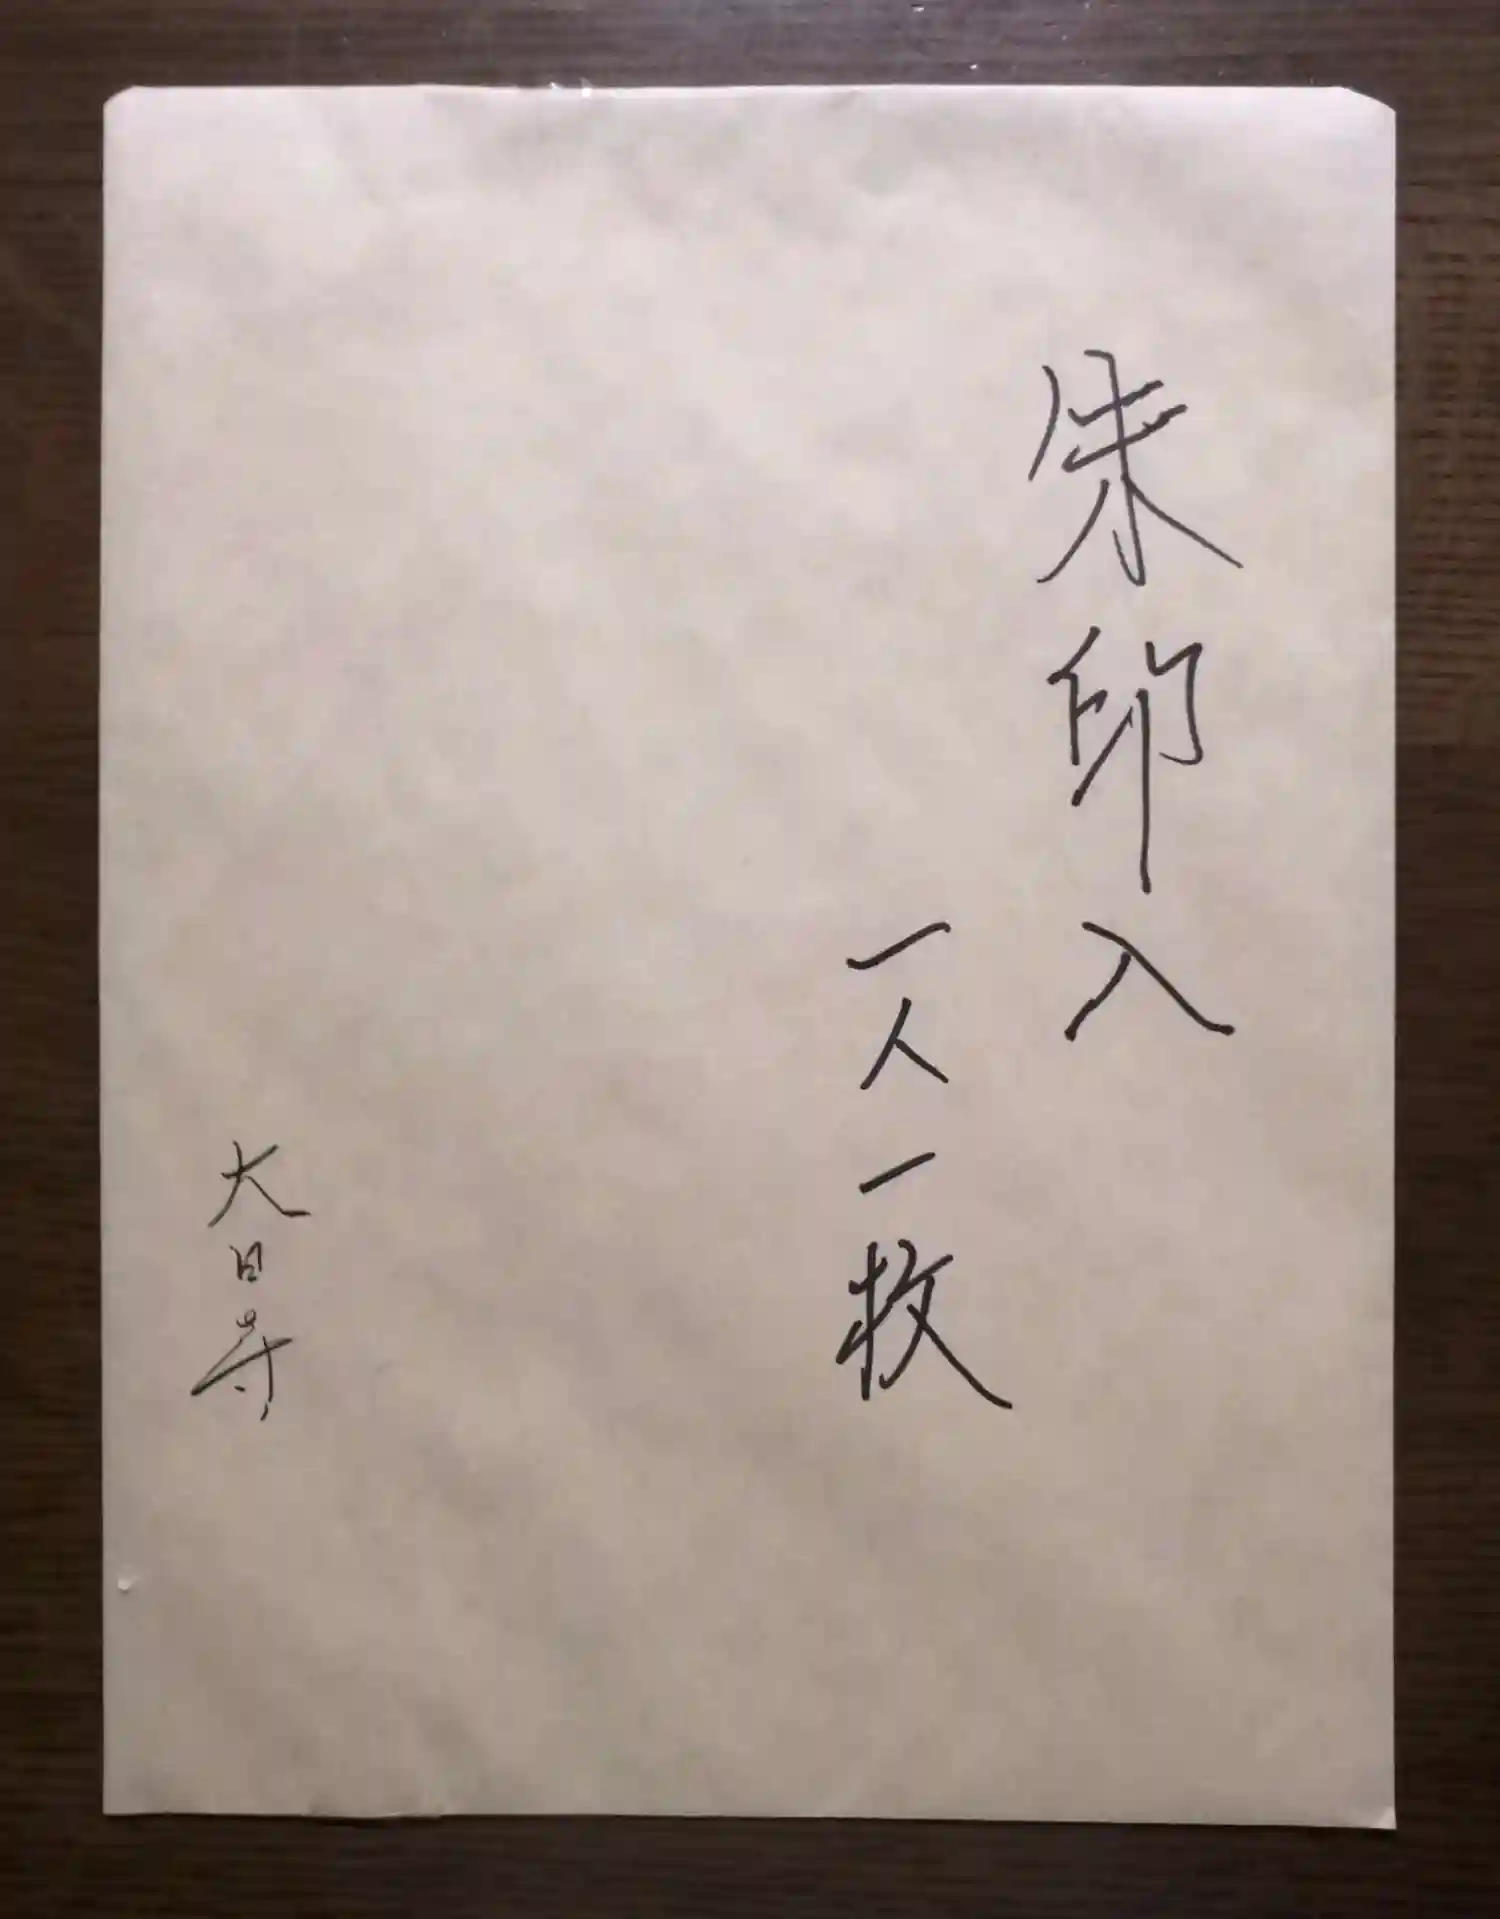 朱印入
一人一枚
大日寺